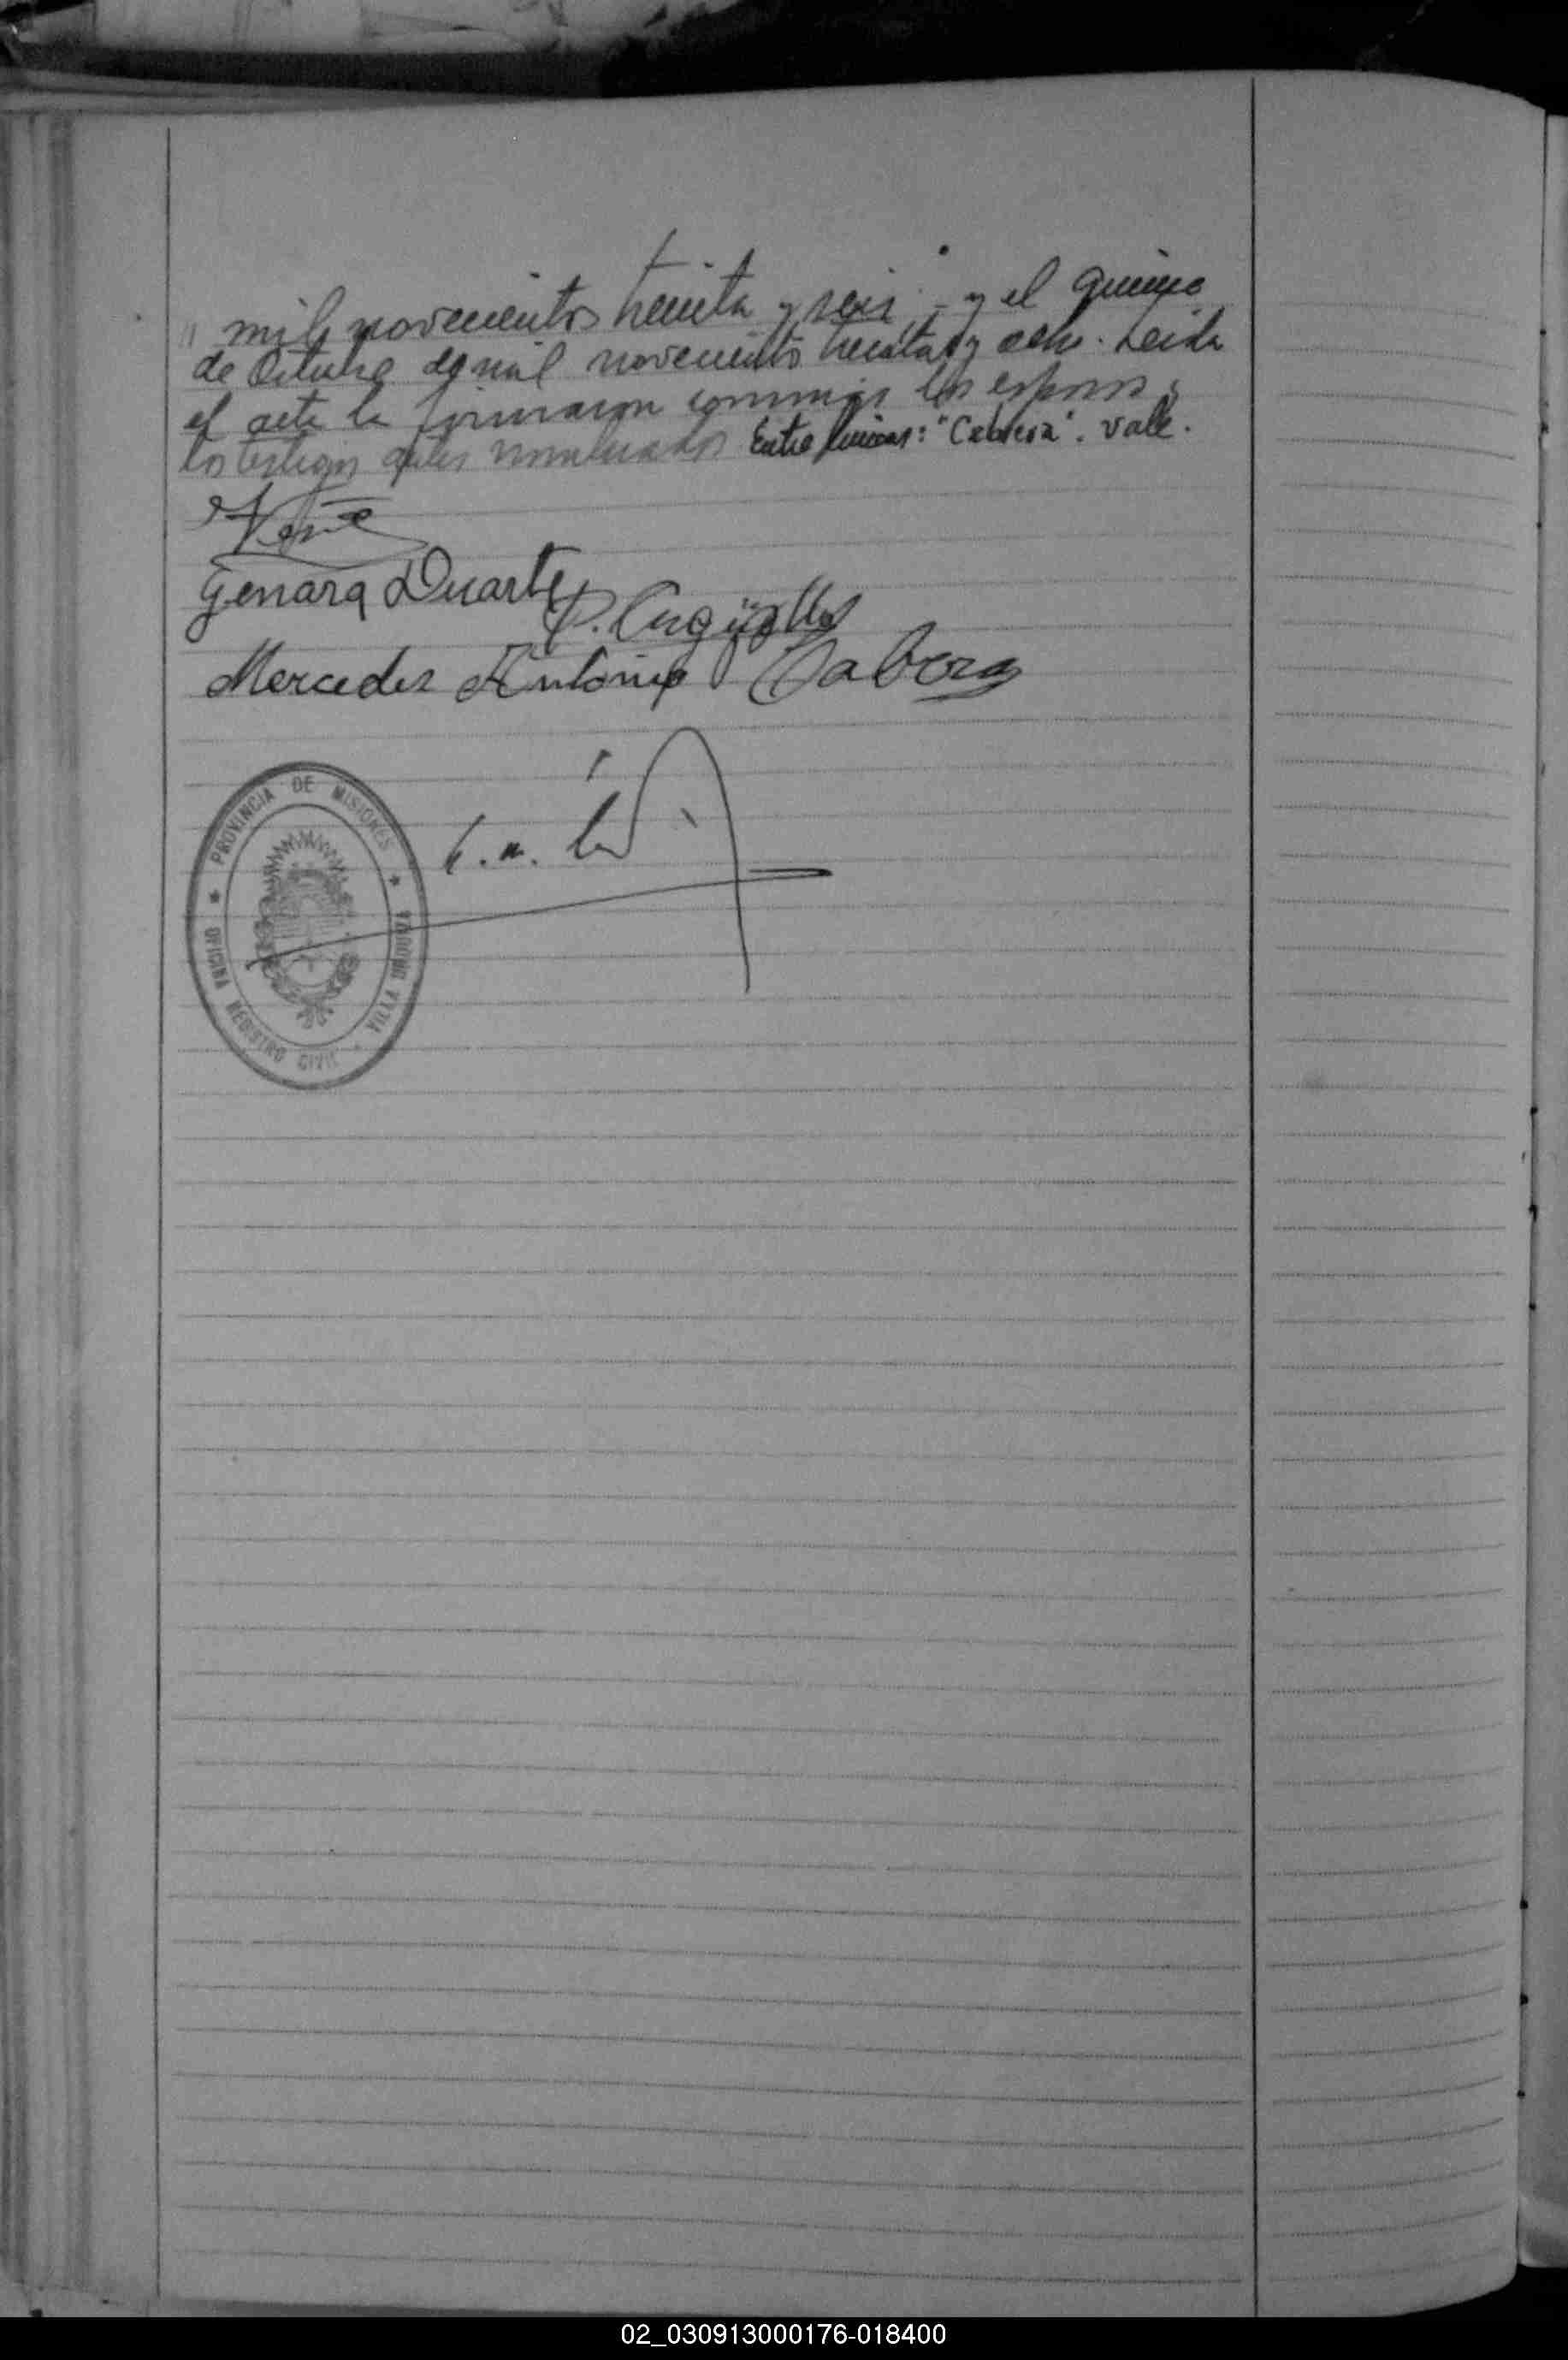 mil novecientos treinta y seis - y el quince
de Octubre de mil novecientos treinta y ocho. Leida
el acta la firmaron conmigo los esposos y
los testigos antes nombrados Entre lineas: "Cabrera". Vale.
Genara Duarte
Mercedes Antonio
PROVINCIA DE MISIONES
OFICINA REGISTRO CIVIL - VILLA URQUIZA
02_030913000176-018400